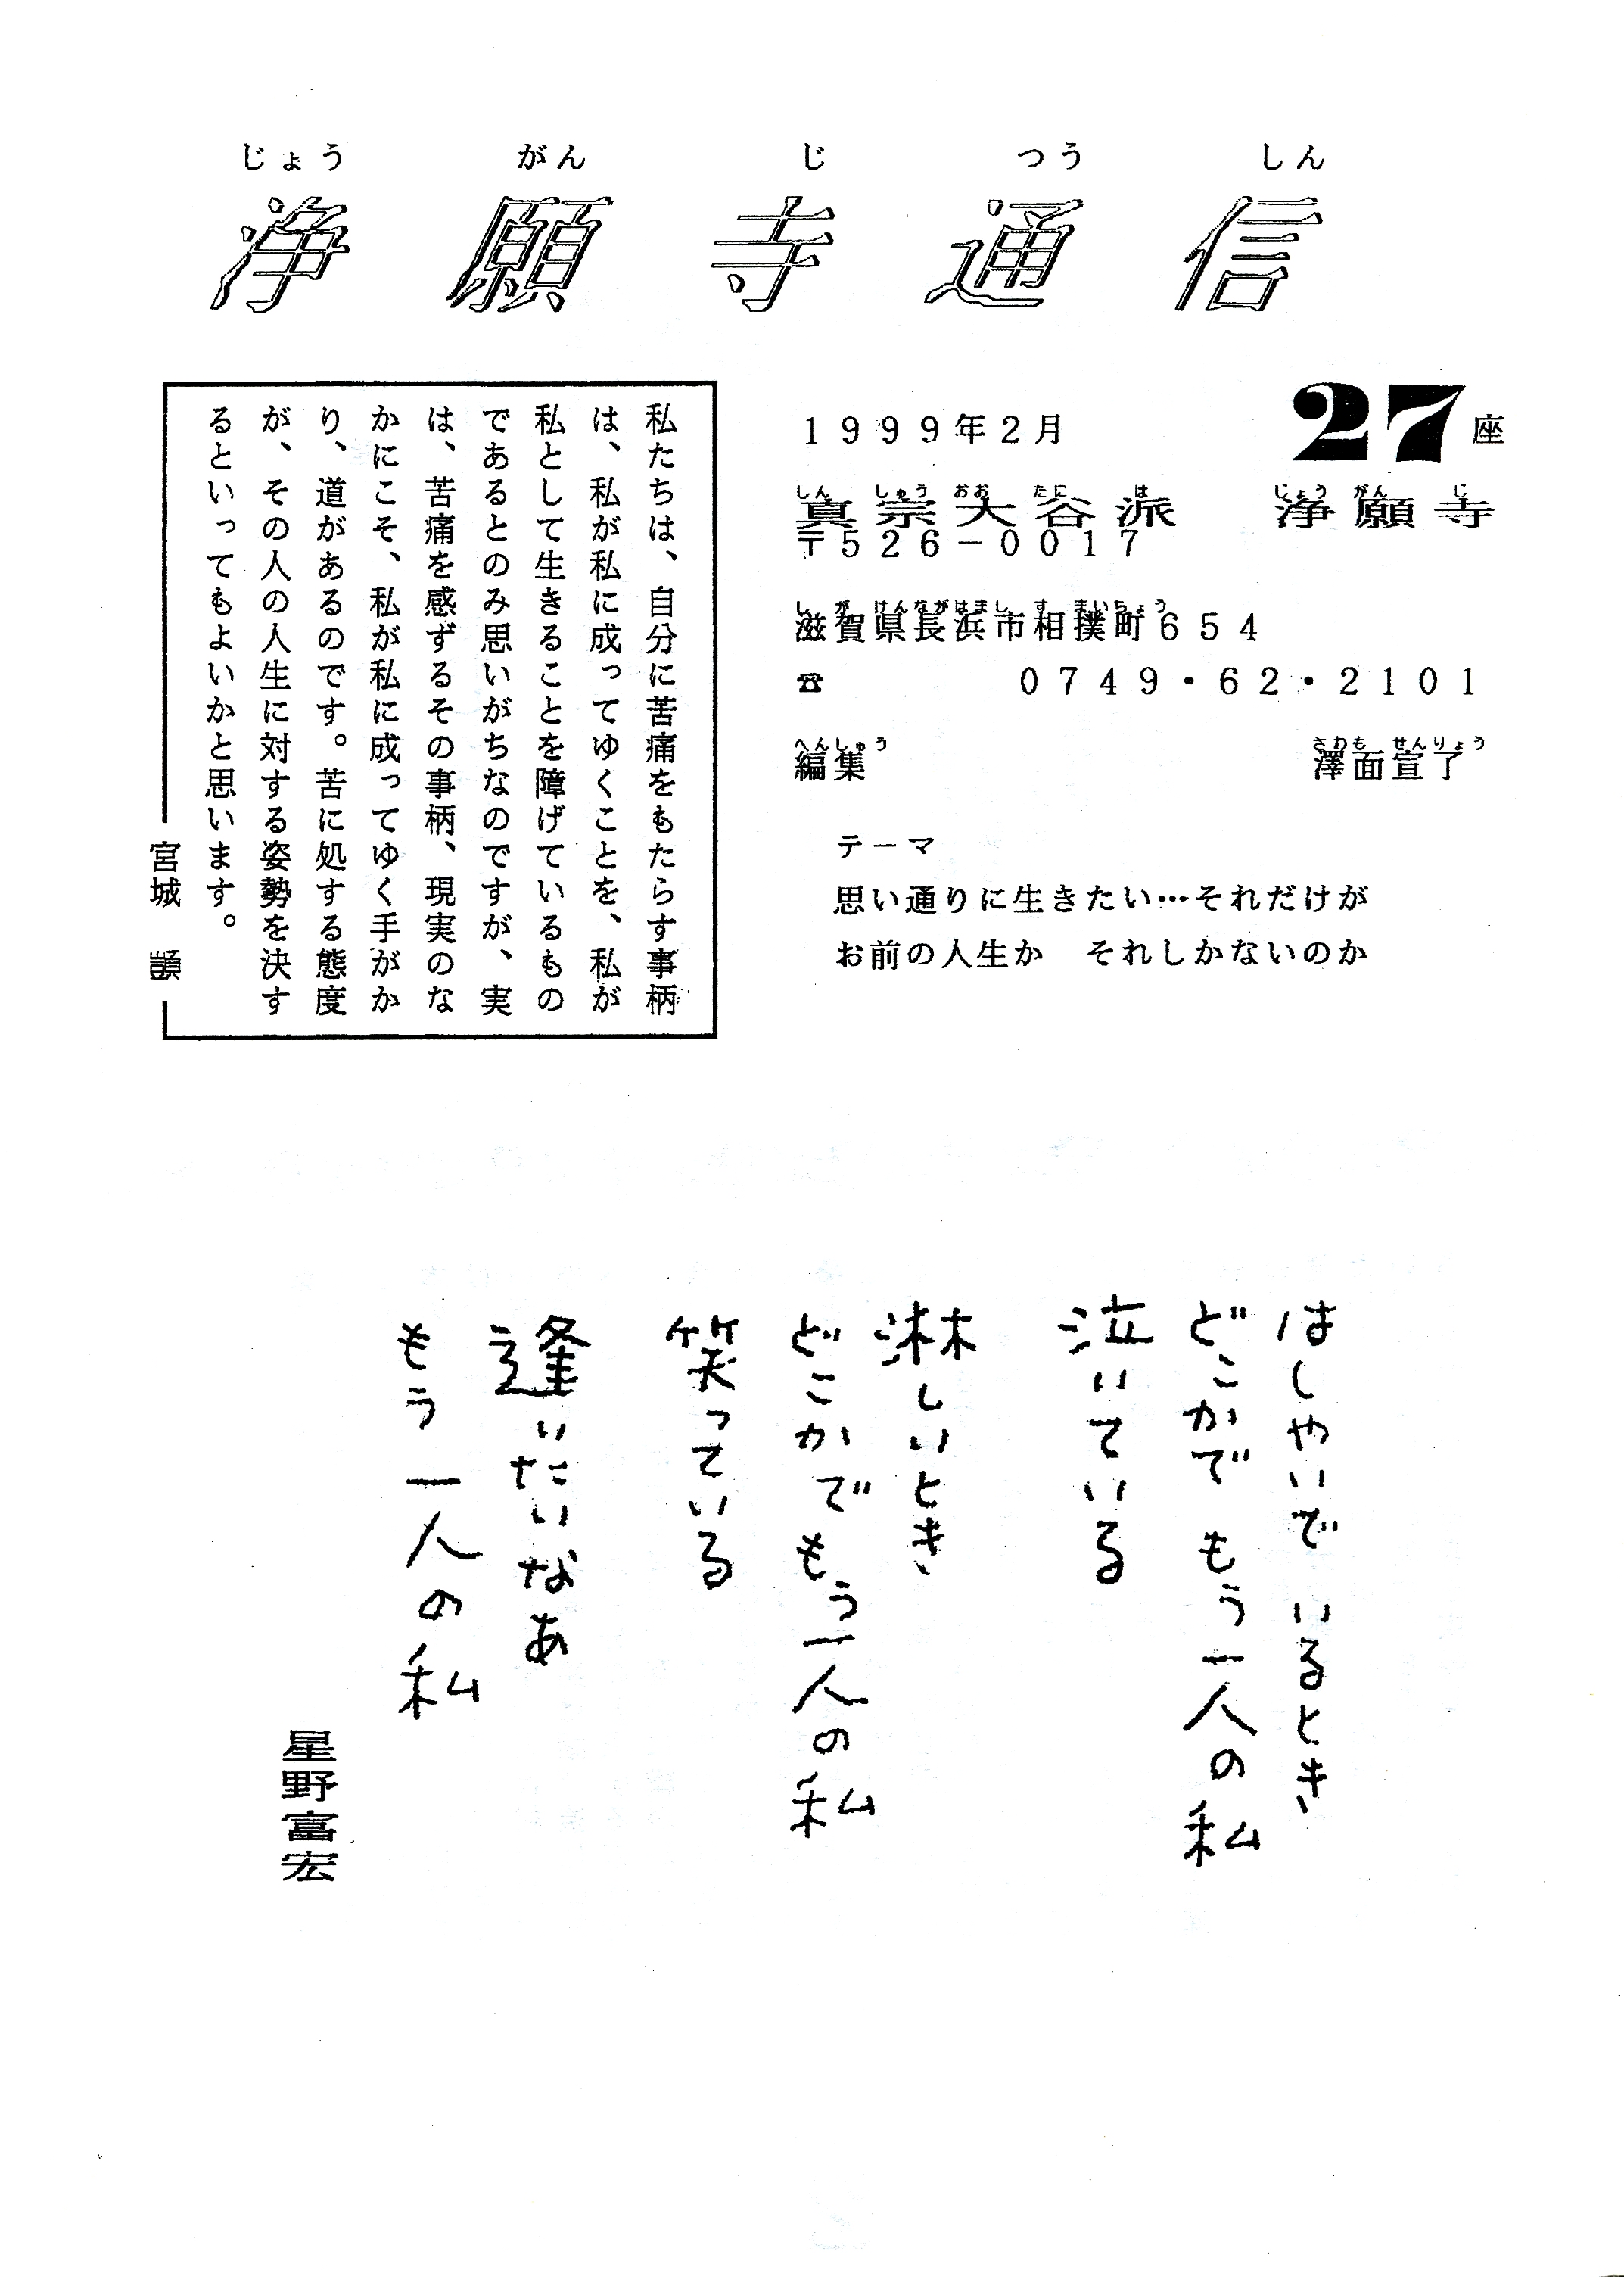 じょう がん じ つう しん
浄願寺通信
27座
1999年2月
しん しゅう おお たに は じょう がん じ
真宗大谷派 浄願寺
〒526-0017
し が けんながはまし す まいちょう
滋賀県長浜市相撲町654
☎ 0749・62・2101
へんしゅう さわも せんりょう
編集 澤面宣了
テーマ
思い通りに生きたい…それだけが
お前の人生か それしかないのか
私たちは、自分に苦痛をもたらす事柄
は、私が私に成ってゆくことを、私が
私として生きることを障げているもの
であるとのみ思いがちなのですが、実
は、苦痛を感ずるその事柄、現実のな
かにこそ、私が私に成ってゆく手がか
り、道があるのです。苦に処する態度
が、その人の人生に対する姿勢を決す
るといってもよいかと思います。
宮城 顗
はしゃいで いるとき
どこかで もう一人の私
泣いている
淋しいとき
どこかでもう一人の私
笑っている
逢いたいなあ
もう一人の私
星野富宏